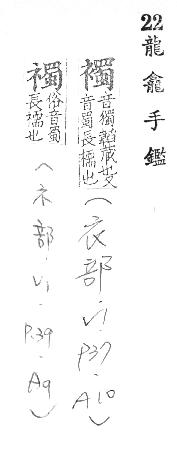 22龍龕手鑑
襡
音獨韜藏也又
音蜀長襦也
(衣部.V1.P37.A10)
襡
俗音蜀
長襦也
(衤部.V1.P39.A9)